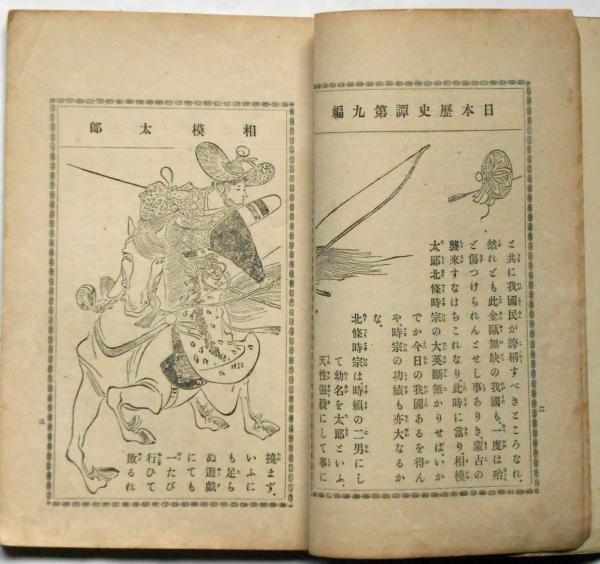 日本歴史譚第九編
二
と共に我國民が誇稱すべきところなれ。
然れども此金甌無缺の我國も一度は殆
と傷つけられんとせし事ありき蒙古の
襲來すなはちこれなり此時に當り相模
太郎北條時宗の大英斷無かりせばいか
でか今日の我國あるを得ん
や時宗の功績も亦大なるか
な。
北條時宗は時頼の二男にし
て幼名を太郎といふ。
天性強毅にして事に
相模太郎
撓まず。
いふに
も足ら
ぬ遊戯
にても
一たび
行ひて
敗るれ
三